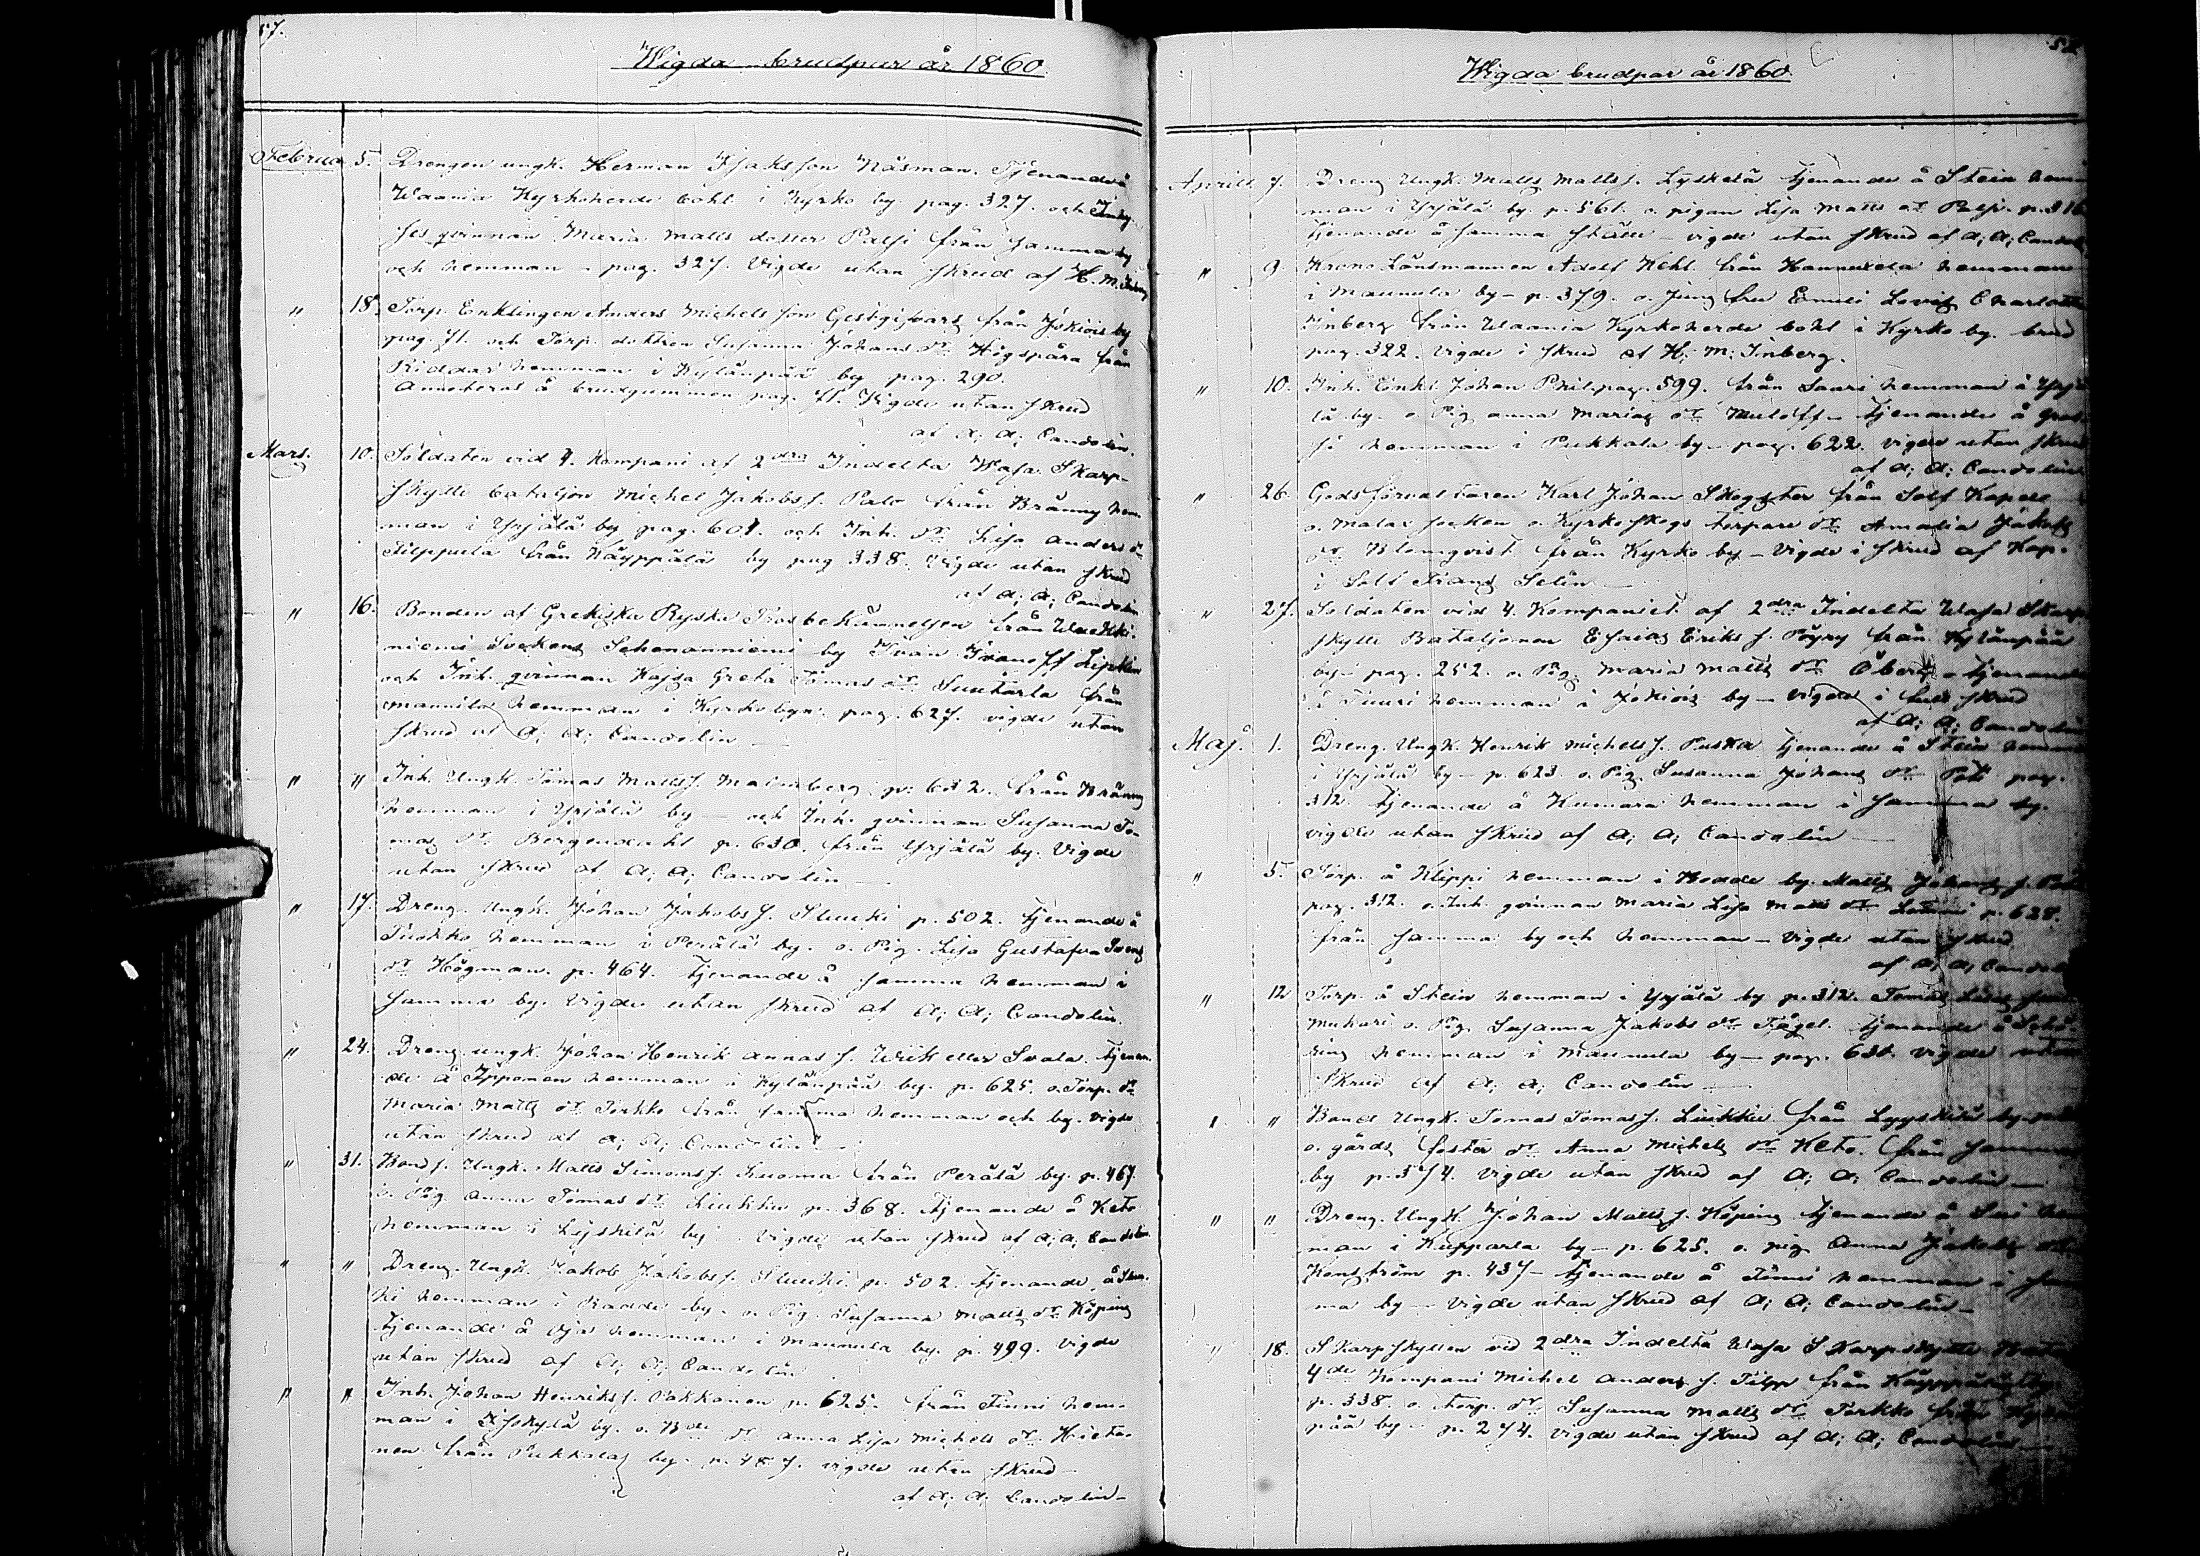 57.
Wigda brudpar år 1860.
Februa 5. Drengen ungk. Herman Isaksson Näsman. Tjenande å
Waania Kyrkoherde bohl i Kyrko by pag. 327. och
qvinnan Maria Matts dotter Palsi från samma by
och hemman - pag. 327. Vigde utan skrud af H. M. Inberg
" 18. Torp. Enklingen Anders Michelsson Gestgifvars från Jokiois by
pag. 71. och Torp. dottren Susanna Johans dr. Högspåra från
Riddar hemman i Kylänpää by pag. 290.
Annoteras å brudgummen pag. 71. Vigde utan skrud
af A; A; Candolin.
Mars. 10. Soldaten vid 4. Kompani af 2dra Indelta Wasa Skarp-
skytte bataljon Michel Jakobs s. Palo från Bränny hem-
man i Yrjälä by pag. 601. och Inh. dr. Lisa Anders dr
Filppula från Käyppälä by pag 338. Vigde utan skrud
af A; A; Candolin
" 16. Bonden af Grekiska Ryska Trosbekännelsen från
niemi Sockens by Ivan Ivanoff
och Inh. qvinnan Kajsa Greta Tomas dr. Suutarla från
Mannila hemman i Kyrkobyn pag. 627. vigde utan
skrud af A; A; Candolin
" " Inh. Ungk. Tomas Matts s. Malmberg p. 602. från Bränny
hemman i Yrjälä by - och Inh. qvinnan Susanna To-
mas dr. Bergendahl p. 630. från Yrjälä by. Vigde
utan skrud af A; A; Candolin
" 17. Dreng. Ungk. Johan Jakobs s. Sluuki p. 502. tjenande å
Tuokko hemman i Perälä by. o. Pig. Lisa Gustafva Svens
dr. Högman. p. 464. tjenande å samma hemman i
samma by. Vigde utan skrud af A; A; Candolin.
" 24. Dreng. ungk. Johan Henrik Annas s. Wik eller Svala. tjenan-
de å Ipponen hemman i Kylänpää by. p. 625. o. Torp. dr
Maria Matts dr. Torkko från samma hemman och by. Vigde
utan skrud af A; A; Candolin
" 31. Bond s. Ungk. Matts Simons s. Kuoma från Perälä by. p. 467.
o. Pig Anna Tomas dr. Liukku p. 368. tjenande å Keto
hemman i Lyskilä by Vigde utan skrud af A; A; Candolin
" " Dreng. Ungk. Jakob Jakobs s. Sluuki p. 502. tjenande å
ki hemman i by - o. Pig. Susanna Matts dr. Köping
tjenande å hemman i Mannula by. p. 499. Vigde
utan skrud af A; A; Candolin
" " Inh. Johan Henriks s. Pakkanen p. 625. från Finni hem-
man i by. o. dr. Anna Lisa Michels dr. Hieta-
nen från Pukkala by. p. vigde utan skrud
af A; A; Candolin -
Wigda brudpar år 1860.
Aprill 7. Dreng. Ungk. Matts Matts s. Lyskelä tjenande å Stein hem-
man i Yrjälä by. p. 561. o. pigan Lisa Matts dr. Palsi. p. 316
tjenande å samma ställe - vigde utan skrud af A; A; Candol
" 9. Krono Länsmannen Adolf Kihl från Hannuxela hemman
i Mannula by - p. 379. o. Jung fru Emili Lovisa Charlotta
Inberg från Waania Kyrkoherde bohl i Kyrko by. brud
pag. 322. vigde i skrud af H; M; Inberg.
" 10. Inh. Enkl. Johan Phil. pag. 599. från Saari hemman i Yrjä
lä by. o. Pig Anna Marias dr. - tjenande å
hemman i Pukkala by - pag. 622. vigde utan skrud
af A; A; Candolin
" 26. Gods förvaltaren Karl Johan Skogster från Solf Kapell
o. Malax socken o. Kyrko skogs torpare dr. Amalia Jakobs
dr. Blomqvist från Kyrko by - Vigde i skrud af Kap.
i Solf Frans Selin -
" 27. Soldaten vid 4. Kompaniet af 2dra Indelta Wasa Skarp
skytte Bataljonen Esaias Eriks s. Pöyry från Kylänpää
by pag. 252. o. Pig. Maria Matts dr. Öberg - tjenande
i Tuuri hemman i Jokiois by - Vigde i full skrud
af A; A; Candolin
Maj. 1. Dreng. Ungk. Henrik Michels s. Puska tjenande å Stein hemman
i Yrjälä by - p. 623. o. Pig. Susanna Johans dr. Poti pag.
312. tjenande å Kumara hemman i samma by.
vigde utan skrud af A; A; Candolin
" 5. Torp. å Klippi hemman i by. Matts Johans s.
pag. 312. o. Inh. qvinnan Maria Lisa Matts dr. p. 628.
från samma by och hemman - Vigde utan skrud
af A; A; Candol
" 12 Torp. å Stein hemman i Yrjälä by p. 312. Tomas
Muhari o. Pig. Susanna Jakobs dr. Fågel. tjenande å
hemman i Mannula by - pag. 631. vigde utan
Skrud af A; A; Candolin
" " Bond Ungk. Tomas Tomas s. Liukku från Lyyskilä by.
o. gårds foster dr. Anna Michels dr. Keto. från samma
by p. 374. Vigde utan skrud af A; A; Candolin
" " Dreng. Ungk. Johan Matts s. Köping tjenande å hem
man i Kupparla by - p. 625. o. pig. Anna Jakobs dr.
Kengström p. 437 - tjenande å Finni hemman i sam
ma by - vigde utan skrud af A; A; Candolin -
" 18. Skarpskytten vid 2dra Indelta Wasa Skarpskytte
4de Kompani Michel Anders s. Filpp från Käyppälä by
p. 338. o. torp. dr. Susanna Matts dr. Torkko från Kylän
pää by - p. 274. vigde utan skrud af A; A; Candolin